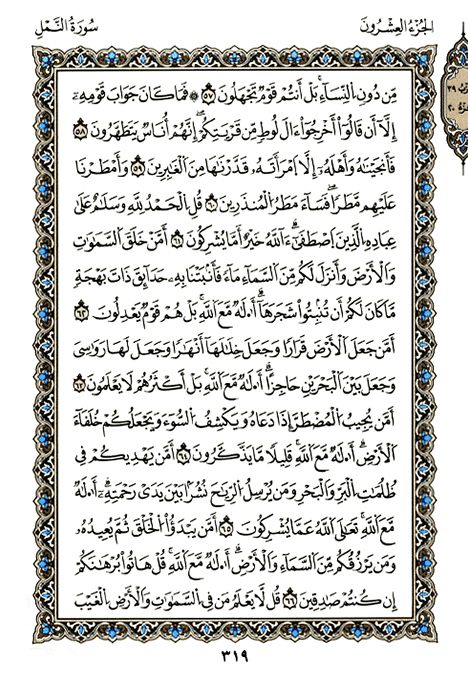 الجُزْءُ العِشْرُونَ
سُورَةُ النَّمْلِ
مِّن دُونِ النِّسَآءِ بَلْ أَنتُمْ قَوْمٌ تَجْهَلُونَ ٥٧ ۞ فَمَا كَانَ جَوَابَ قَوْمِهِۦٓ
إِلَّآ أَن قَالُوٓا۟ أَخْرِجُوٓا۟ ءَالَ لُوطٍ مِّن قَرْيَتِكُمْ إِنَّهُمْ أُنَاسٌ يَتَطَهَّرُونَ ٥٨
فَأَنجَيْنَٰهُ وَأَهْلَهُۥٓ إِلَّا ٱمْرَأَتَهُۥ قَدَّرْنَٰهَا مِنَ ٱلْغَٰبِرِينَ ٥٩ وَأَمْطَرْنَا
عَلَيْهِم مَّطَرًا فَسَآءَ مَطَرُ ٱلْمُنذَرِينَ ٦٠ قُلِ ٱلْحَمْدُ لِلَّهِ وَسَلَٰمٌ عَلَىٰ
عِبَادِهِ ٱلَّذِينَ ٱصْطَفَىٰٓ ءَآللَّهُ خَيْرٌ أَمَّا يُشْرِكُونَ ٦١ أَمَّنْ خَلَقَ ٱلسَّمَٰوَٰتِ
وَٱلْأَرْضَ وَأَنزَلَ لَكُم مِّنَ ٱلسَّمَآءِ مَآءً فَأَنۢبَتْنَا بِهِۦ حَدَآئِقَ ذَاتَ بَهْجَةٍ
مَّا كَانَ لَكُمْ أَن تُنۢبِتُوا۟ شَجَرَهَآ أَ۟لَٰهٌ مَّعَ ٱللَّهِ بَلْ هُمْ قَوْمٌ يَعْدِلُونَ ٦٢
أَمَّن جَعَلَ ٱلْأَرْضَ قَرَارًا وَجَعَلَ خِلَٰلَهَآ أَنْهَٰرًا وَجَعَلَ لَهَا رَوَٰسِىَ
وَجَعَلَ بَيْنَ ٱلْبَحْرَيْنِ حَاجِزًا أَ۟لَٰهٌ مَّعَ ٱللَّهِ بَلْ أَكْثَرُهُمْ لَا يَعْلَمُونَ ٦٣
أَمَّن يُجِيبُ ٱلْمُضْطَرَّ إِذَا دَعَاهُ وَيَكْشِفُ ٱلسُّوٓءَ وَيَجْعَلُكُمْ خُلَفَآءَ
ٱلْأَرْضِ أَ۟لَٰهٌ مَّعَ ٱللَّهِ قَلِيلًا مَّا يَذَّكَّرُونَ ٦٤ أَمَّن يَهْدِيكُمْ فِى
ظُلُمَٰتِ ٱلْبَرِّ وَٱلْبَحْرِ وَمَن يُرْسِلُ ٱلرِّيَٰحَ نُشُرًۢا بَيْنَ يَدَىْ رَحْمَتِهِۦٓ أَ۟لَٰهٌ
مَّعَ ٱللَّهِ تَعَٰلَى ٱللَّهُ عَمَّا يُشْرِكُونَ ٦٥ أَمَّن يَبْدَؤُا۟ ٱلْخَلْقَ ثُمَّ يُعِيدُهُۥ
وَمَن يَرْزُقُكُم مِّنَ ٱلسَّمَآءِ وَٱلْأَرْضِ أَ۟لَٰهٌ مَّعَ ٱللَّهِ قُلْ هَاتُوا۟ بُرْهَٰنَكُمْ
إِن كُنتُمْ صَٰدِقِينَ ٦٦ قُل لَّا يَعْلَمُ مَن فِى ٱلسَّمَٰوَٰتِ وَٱلْأَرْضِ ٱلْغَيْبَ
٣١٩